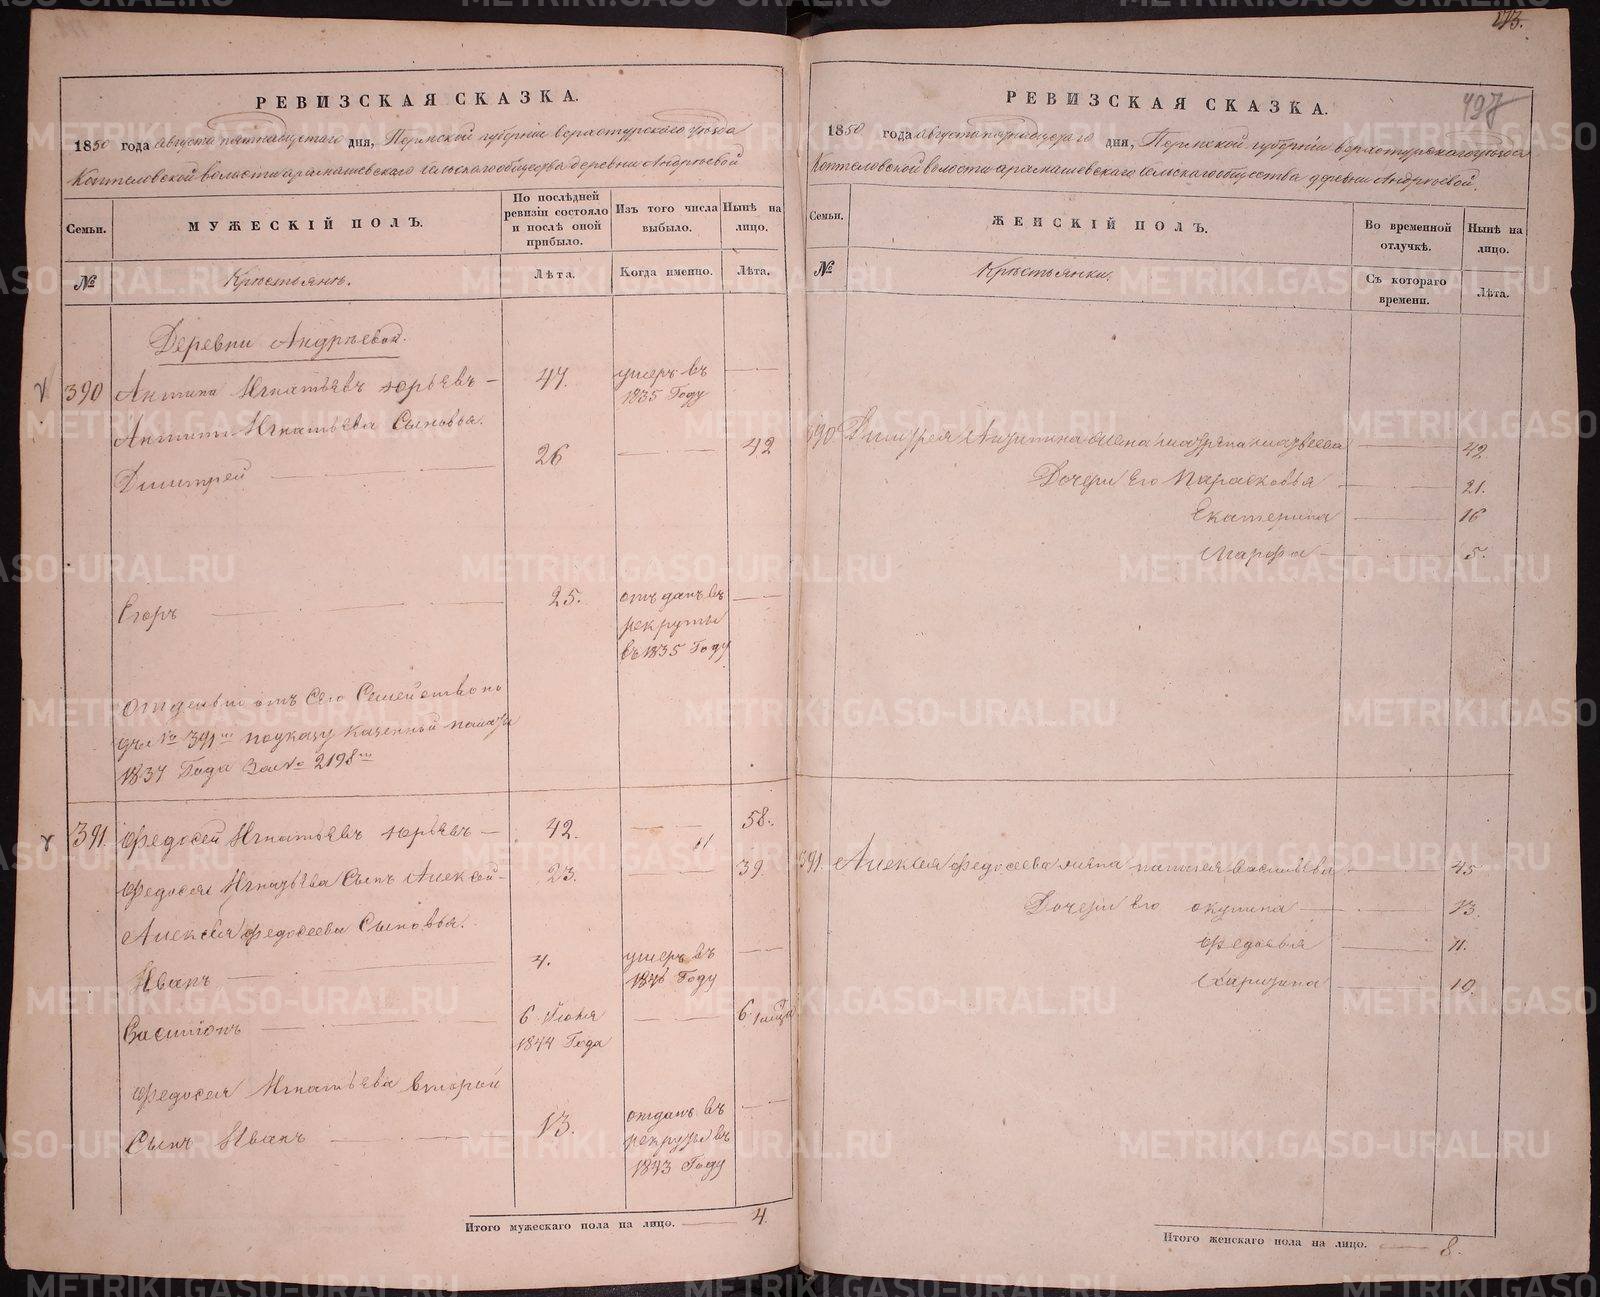 273.
498
РЕВИЗСКАЯ СКАЗКА.
1850 года августа пятнацетаго дня, Пермской губерніи Верхотурскаго уѣзда
Коптеловской волости арамашевскаго сельскаго общества деревни Андрѣевой
Семьи.
МУЖЕСКІЙ ПОЛЪ.
По послѣдней ревизіи состояло и послѣ оной прибыло.
Изъ того числа выбыло.
Нынѣ на лицо.
№
Крестьянъ.
Лѣта.
Когда именно.
Лѣта.
Деревни Андрѣевой.
390 Антипа Игнатьевъ Юрьевъ — 47. умеръ въ 1835 Году
Антипы Игнатьева Сыновья.
Дмитрей 26 42
Егоръ 25. отъданъ въ рекруты въ 1835 Году
Отделен отъ Сего Семейства по
дъ № 391 м по указу Казенной палаты
1837 Года За № 2198 м
391. Федосей Игнатьевъ Юрьевъ — 42. 58.
11
Федосея Игнатьева Сынъ Алексей — 23. 39
Алексея Федосеева Сыновья.
Иванъ 4. умеръ въ 1846 Году
Василюнъ 6 Июня 1844 Года 6
Федосея Игнатьева второй
Сынъ Иванъ 13. отданъ въ рекруты въ 1843 Году
Итого мужескаго пола на лицо. 4.
РЕВИЗСКАЯ СКАЗКА.
1850 года августа пятнацетаго дня, Пермской губерніи Верхотурскаго уѣзда
Коптеловской волости арамашевскаго сельскаго общества деревни Андрѣевой.
Семьи.
ЖЕНСКІЙ ПОЛЪ.
Во временной отлучкѣ.
Нынѣ на лицо.
№
Крестьянки.
Съ котораго времени.
Лѣта.
390 Дмитрея Антипина жена матрена матвеева 42.
Дочери Его Парасковья 21.
Екатерина 16
Марфа 5.
391. Алексея Федосеева жена Васильева 45
Дочери его окулина 13.
Федосья 11.
Харитина 10.
Итого женскаго пола на лицо. 8.
METRIKI.GASO-URAL.RU